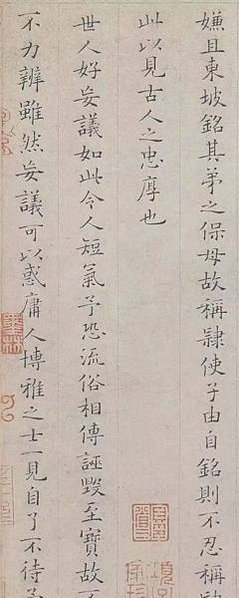 嫌且東坡銘其弟之保母故稱隸使子由自銘則不忍稱隸
此以見古人之忠厚也
世人好妄議如此令人短氣予恐流俗相傳誣毀至寶故不
不力辨雖然妄議可以惑庸人博雅之士一見自了不待予